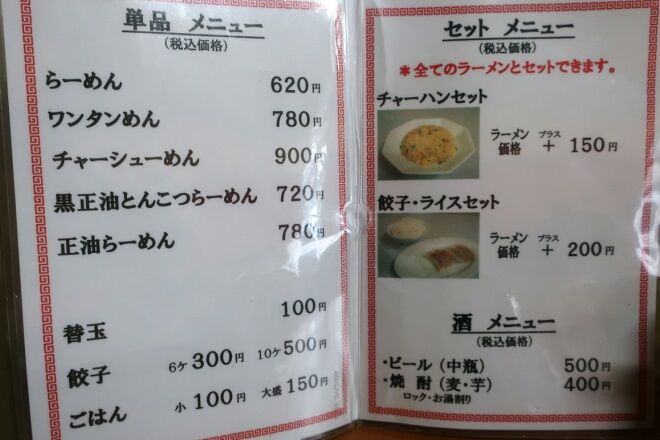 単品 メニュー
(税込価格)
らーめん 620円
ワンタンめん 780円
チャーシューめん 900円
黒正油とんこつらーめん 720円
正油らーめん 780円
替玉 100円
餃子 6ケ 300円 10ケ 500円
ごはん 小 100円 大盛 150円
セット メニュー
(税込価格)
*全てのラーメンとセットできます。
チャーハンセット
ラーメン価格 プラス + 150円
餃子・ライスセット
ラーメン価格 プラス + 200円
酒 メニュー
(税込価格)
・ビール (中瓶) 500円
・焼 酎 (麦・芋) 400円
ロック・お湯割り